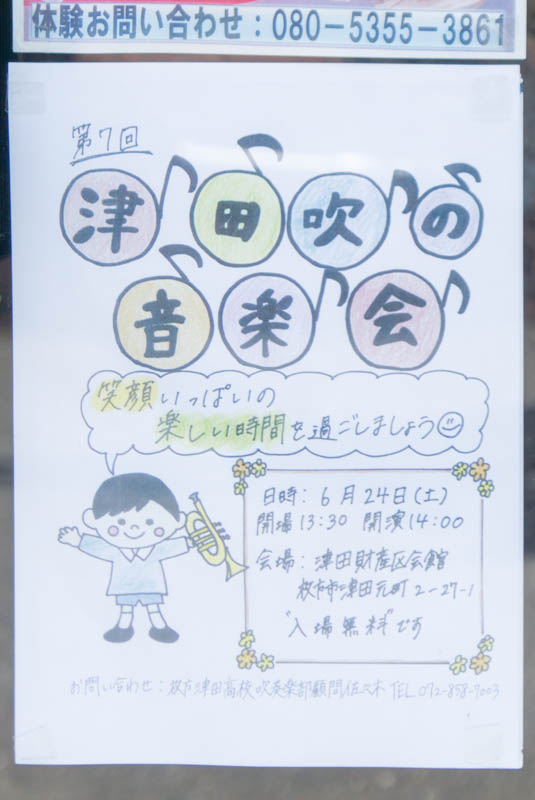 体験お問い合わせ：080－5355－3861
第7回
津田吹の
音楽会
笑顔いっぱいの
楽しい時間を過ごしましょう
日時：6月24日(土)
開場13:30 開演14:00
会場：津田財産区会館
枚方市津田元町2-27-1
"入場無料"です
お問い合わせ：枚方津田高校吹奏楽部顧問佐々木 TEL 072-858-7003